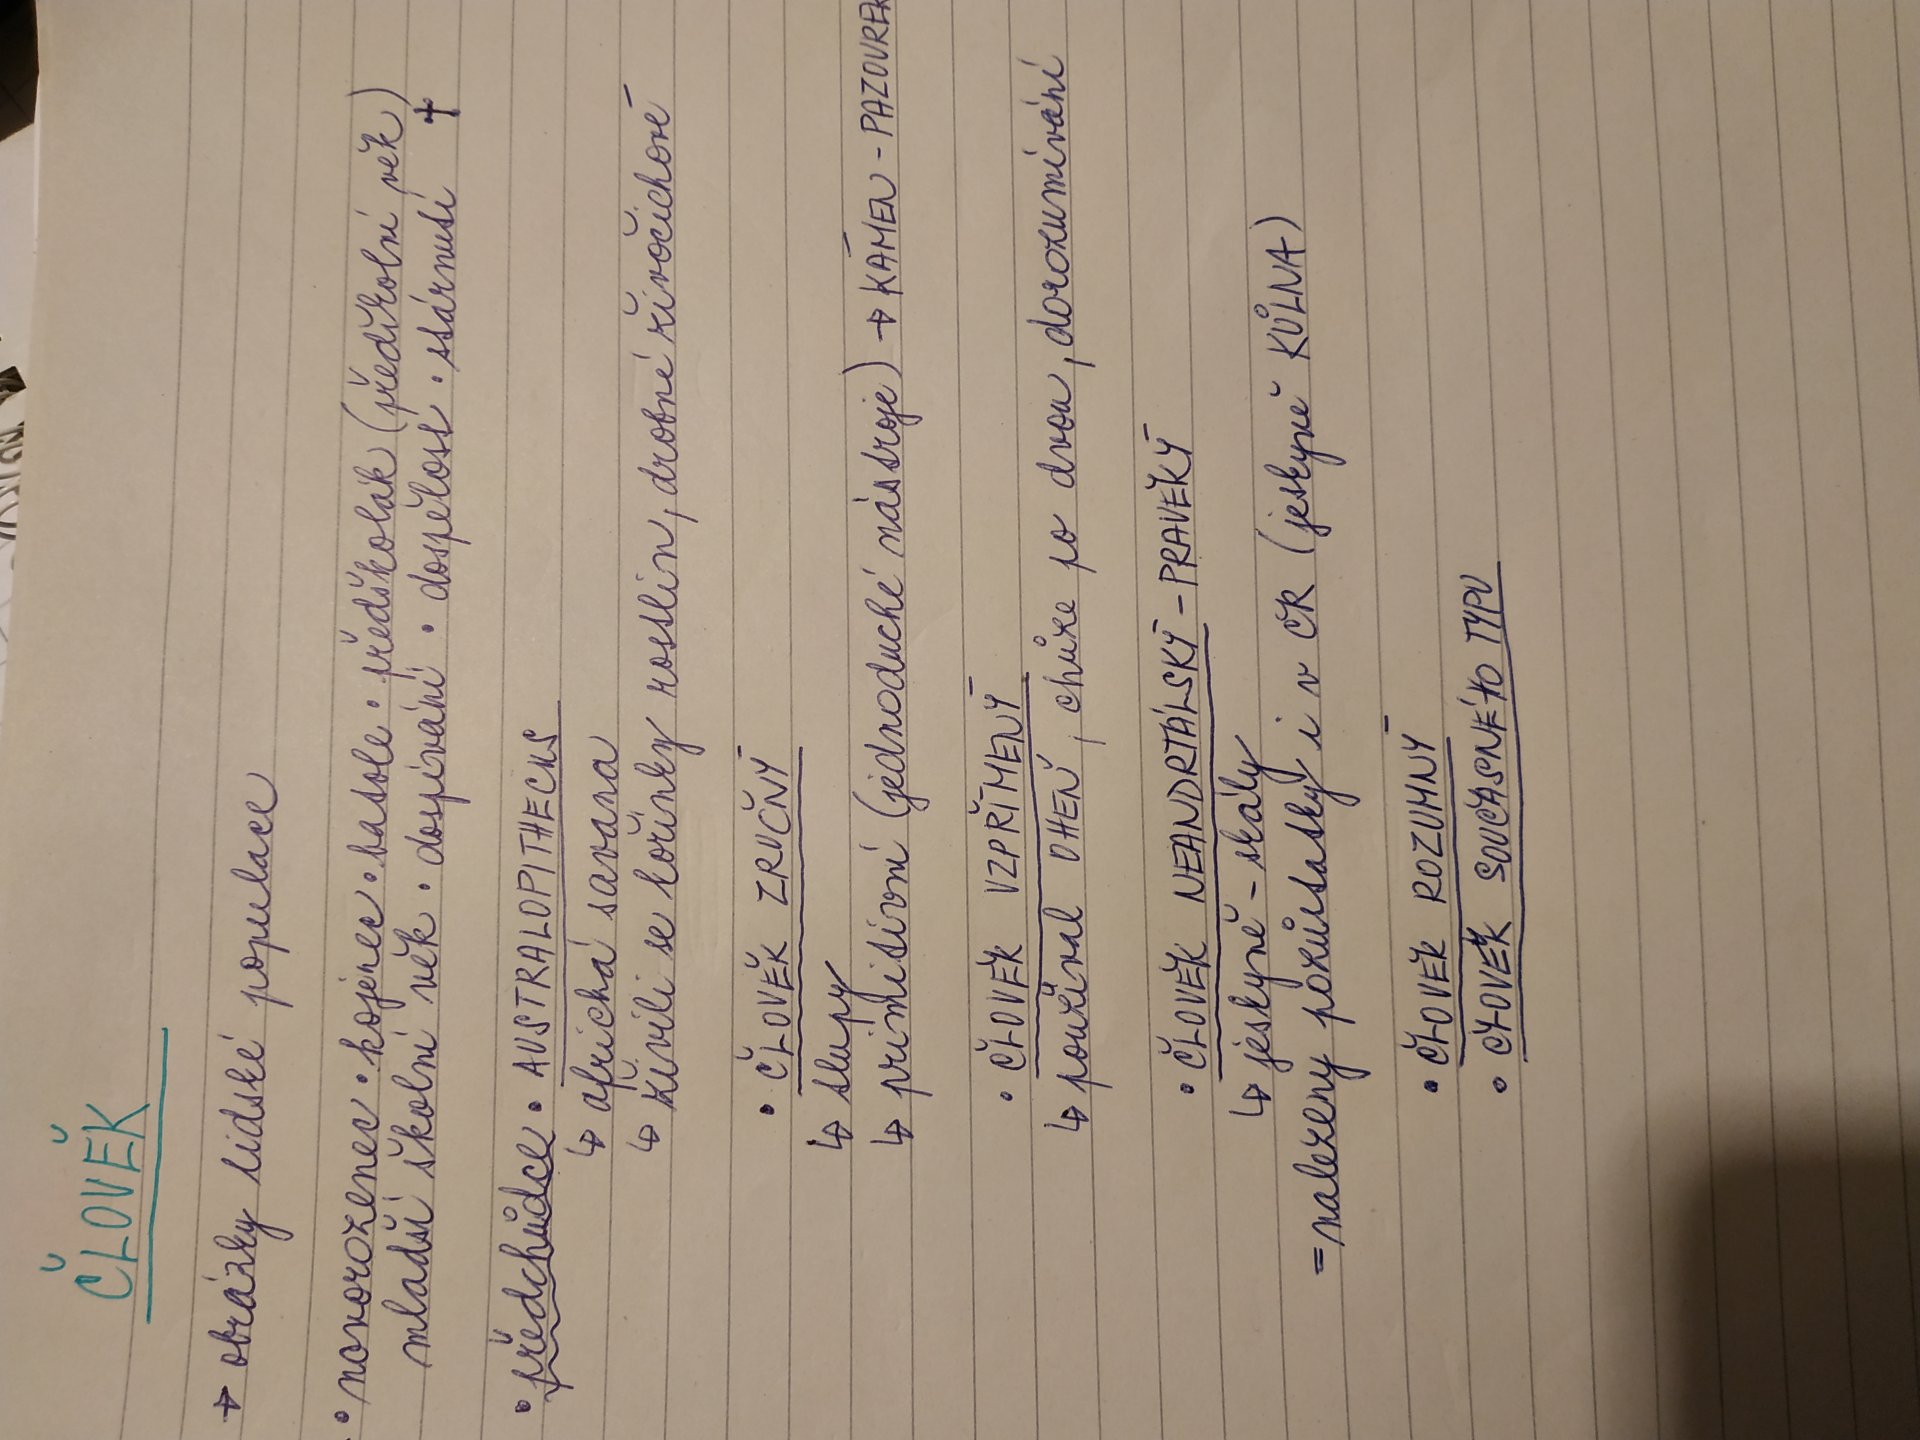 ČLOVĚK
→ obrázky lidské populace
• novorozenec • kojenec • batole • předškolák (předškolní věk)
mladší školní věk • dospívání • dospělost • stárnutí †
• předchůdce • AUSTRALOPITHECUS
↳ africká savana
↳ živili se kořínky rostlin, drobné živočichové
• ČLOVĚK ZRUČNÝ
↳ slupy
↳ primitivní (jednoduché nástroje) → KÁMEN - PAZOUREK
• ČLOVĚK VZPŘÍMENÝ
↳ používal OHEŇ, chůze po dvou, dorozumívání
• ČLOVĚK NEANDRTÁLSKÝ - PRAVĚKÝ
↳ jeskyně - skály
= nalezeny pozůstatky i v ČR (jeskyně KŮLNA)
• ČLOVĚK ROZUMNÝ
• ČLOVĚK SOUČASNÉHO TYPU